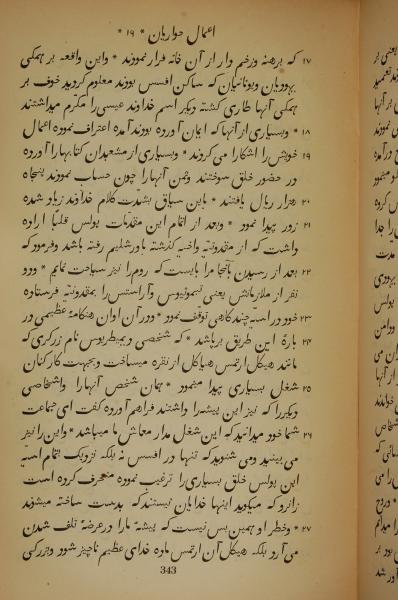 اعمال حواریان * ۱۹ *
۱۷ که برهنه وزخم دار از آن خانه فرار نمودند * واین واقعه بر همکی
یهودیان ویونانیان که ساکن افسس بودند معلوم کردید خوف بر
همکی آنها طاری کشته دیکر اسم خداوند عیسی را مکرم میداشتند
۱۸ * وبسیاری از آنها که ایمان آورده بودند آمده اعتراف نموده اعمال
۱۹ خویش را اشکارا می کردند * وبسیاری از مشعبدان کتابها را آورده
در حضور خلق سوختند وثمن آنها را چون حساب نمودند پنجاه
۲۰ هزار ریال یافتند * باین سیاق بشدت کلام خداوند زیاد شده
۲۱ زور پیدا نمود * وبعد از اتمام این مقدمات پولس قلبا اراده
داشت که از مقدونیه واخیه کذشته باورشلیم رفته باشد وفرمود که
۲۲ بعد از رسیدن بآنجا مرا بایست که روم را نیز سیاحت نمایم * ودو
نفر از ملازمانش یعنی تیموتیوس واراستس را بمقدونیه فرستاده
۲۳ خود در اسیه چند کاهی توقف نمود * ودر آن اوان هنکامه عظیمی در
۲۴ بارهٔ این طریق بر پا شد * که شخصی دیمیطریوس نام زرکری که
مانند هیکل ارتمس هیاکل از نقره میساخت وبجهت کارکنان
۲۵ شغل بسیاری پیدا مینمود * همان شخص آنها را واشخاصی
دیکر را که نیز این پیشه را داشتند فراهم آورده کفت ای جماعت
۲۶ شما خود میدانید که این شغل مدار معاش ما میباشد * واین را نیز
می بینید ومی شنوید که تنها در افسس نه بلکه نزدیک بتمام اسیه
این پولس خلق بسیاری را ترغیب نموده منحرف کرده است
زانرو که میکوید اینها خدایان نیستند که بدست ساخته میشوند
۲۷ * وخطر او همین بس نیست که پیشهٔ ما را در عرضهٔ تلف شدن
می آرد بلکه هیکل آن ارتمس ماده خدای عظیم ناچیز شود وبزرکی
343